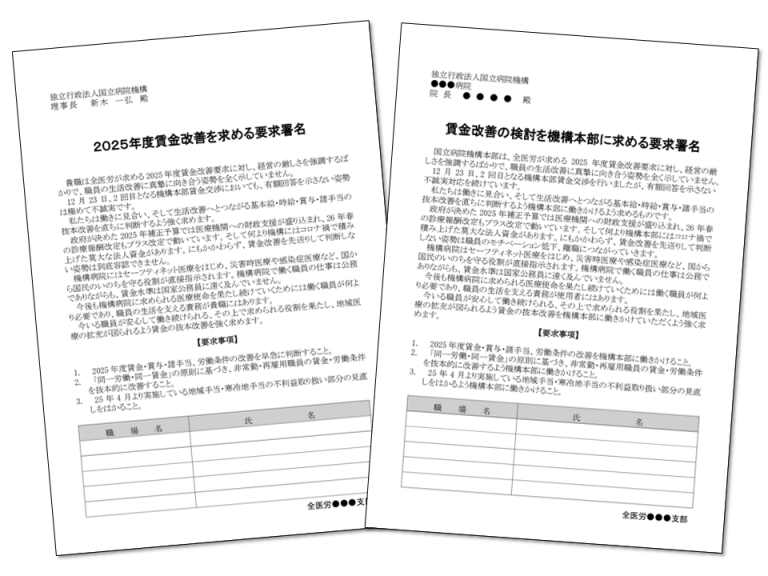 独立行政法人国立病院機構
理事長　新木　一弘　殿
2025年度賃金改善を求める要求署名
貴職は全医労が求める2025年度賃金改善要求に対し、経営の厳しさを強調するば
かりで、職員の生活改善に真摯に向き合う姿勢を全く示していません。
12月23日、2回目となる機構本部賃金交渉においても、有額回答を示さない姿勢
は極めて不誠実です。
私たちは働きに見合い、そして生活改善へとつながる基本給・時給・賞与・諸手当の
抜本改善を直ちに判断するよう強く求めます。
政府が決めた25年補正予算では医療機関への財政支援が盛り込まれ、26年春
の診療報酬改定もプラス改定で動いています。そして何より機構にはコロナ禍で積み
上げた莫大な法人資金があります。にもかかわらず、賃金改善を先送りして判断しな
い姿勢は到底容認できません。
機構病院にはセーフティネット医療をはじめ、災害時医療や感染症医療など、国か
ら国民のいのちを守る役割が直接指示されます。機構病院で働く職員の仕事は公務
でありながらも、賃金水準は国家公務員に遠く及んでいません。
今後も機構病院に求められる医療使命を果たし続けていくためには働く職員が何よ
り必要であり、職員の生活を支える責務が貴職にはあります。
今いる職員が安心して働き続けられる、その上で求められる役割を果たし、地域医
療の拡充が図られるよう賃金の抜本改善を強く求めます。
【要求事項】
1.　2025年度賃金・賞与・諸手当、労働条件の改善を早急に判断すること。
2.　「同一労働・同一賃金」の原則に基づき、非常勤・再雇用職員の賃金・労働条件
を抜本的に改善すること。
3.　25年4月より実施している地域手当・寒冷地手当の不利益取り扱い部分の見直
しをはかること。
職　場　名　氏　名
全医労●●●支部
独立行政法人国立病院機構
●●●病院
院長　●●●●　殿
賃金改善の検討を機構本部に求める要求署名
国立病院機構本部は、全医労が求める2025年度賃金改善要求に対し、経営の厳
しさを強調するばかりで、職員の生活改善に真摯に向き合う姿勢を全く示していません。
12月23日、2回目となる機構本部賃金交渉を行いましたが、有額回答を示さない
不誠実対応を続けています。
私たちは働きに見合い、そして生活改善へとつながる基本給・時給・賞与・諸手当の
抜本改善を直ちに判断するよう機構本部に働きかけるよう求めるものです。
政府が決めた25年補正予算では医療機関への財政支援が盛り込まれ、26年春
の診療報酬改定もプラス改定で動いています。そして何より機構本部にはコロナ禍で
積み上げた莫大な法人資金があります。にもかかわらず、賃金改善を先送りして判断
しない姿勢は職員のモチベーション低下、離職につながっていきます。
機構病院にはセーフティネット医療をはじめ、災害時医療や感染症医療など、国から
国民のいのちを守る役割が直接指示されます。機構病院で働く職員の仕事は公務で
ありながらも、賃金水準は国家公務員に遠く及んでいません。
今後も機構病院に求められる医療使命を果たし続けていくためには働く職員が何よ
り必要であり、職員の生活を支える責務が使用者にはあります。
今いる職員が安心して働き続けられる、その上で求められる役割を果たし、地域医
療の拡充が図られるよう賃金の抜本改善を機構本部に働きかけていただくよう強く求
めます。
【要求事項】
1.　2025年度賃金・賞与・諸手当、労働条件の改善を機構本部に働きかけること。
2.　「同一労働・同一賃金」の原則に基づき、非常勤・再雇用職員の賃金・労働条件
を抜本的に改善するよう機構本部に働きかけること。
3.　25年4月より実施している地域手当・寒冷地手当の不利益取り扱い部分の見直
しをはかるよう機構本部に働きかけること。
職　場　名　氏　名
全医労●●●支部